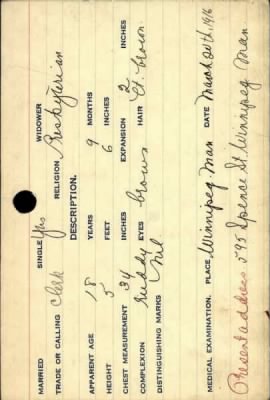 MARRIED SINGLE Yes WIDOWER
TRADE OR CALLING Clerk RELIGION Presbyterian
DESCRIPTION.
APPARENT AGE 18 YEARS 9 MONTHS
HEIGHT 5 FEET 6 INCHES
CHEST MEASUREMENT 34 INCHES EXPANSION 2 INCHES
COMPLEXION ruddy EYES brown HAIR Lt. brown
DISTINGUISHING MARKS Nil
MEDICAL EXAMINATION. PLACE Winnipeg Man DATE March 20th, 1916
Present address 595 Spence St Winnipeg Man